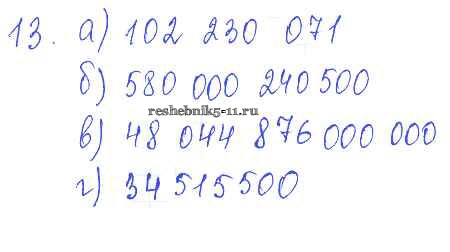 13. а) 102 230 071
б) 580 000 240 500
reshebnik5-11.ru
в) 48 044 876 000 000
г) 34 515 500